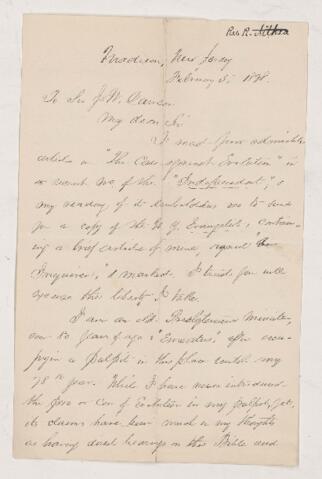 Rev. R.
Madison, New Jersey
February 5, 1898.
To Sir J. W. Dawson
My dear Sir
I read your admirable
article on "The Case against Evolution" in
a recent no. of the "Independent", &
my reading of it emboldens me to send
you a copy of the N. Y. Evangelist, contain-
ing a brief article of mine, signed
"Inquirer," & marked. I trust you will
excuse this liberty I take.
I am an old Presbyterian minister,
over 80 years of age & "Emeritus" after occu-
pying a pulpit in this place until my
78th year. While I have never introduced
the pro or con of Evolution in my pulpit, yet,
its claims have been much in my thoughts
as having direct bearings on the Bible and